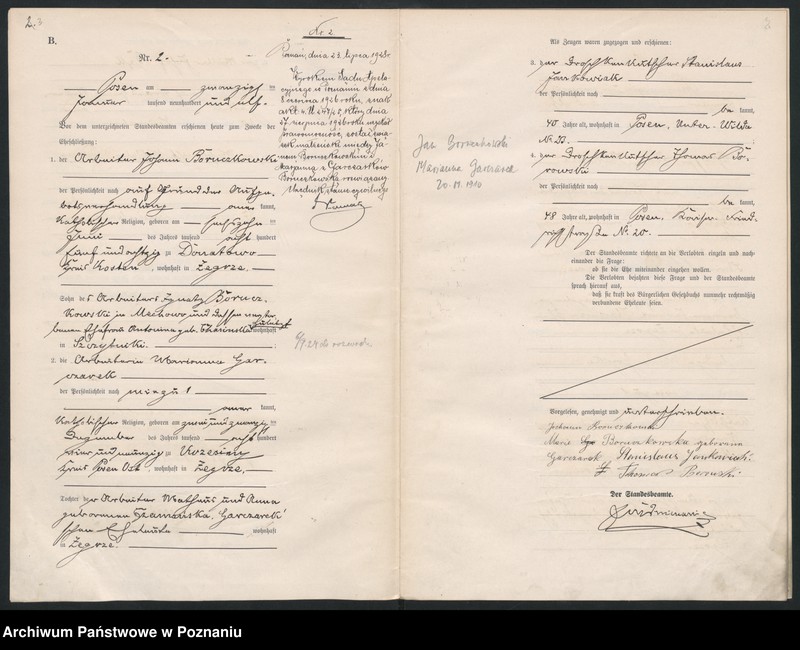 2.
B.
Nr. 2.
Posen am zwanzigsten
Januar tausend neunhundert und elf.
Vor dem unterzeichneten Standesbeamten erschienen heute zum Zwecke der
Eheschließung:
1. der Arbeiter Johann Boruczkowski
der Persönlichkeit nach auf Grund der Aufge-
botsverhandlung aner kannt,
katholischer Religion, geboren am sechszehnten
Juni des Jahres tausend acht hundert
fünf und achtzig zu Donatowo
Kreis Kosten, wohnhaft in Zegrze.
Sohn des Arbeiters Ignatz
in Mechowo, und dessen verstor-
benen Ehefrau Antonina geb. zuletzt wohnhaft
in
2. die Arbeiterin Marianna Gar-
czarek
der Persönlichkeit nach wie zu 1
aner kannt,
katholischer Religion, geboren am zweiundzwanzigsten
Dezember des Jahres tausend acht hundert
vier und neunzig zu
Kreis Posen Ost, wohnhaft in Zegrze.
Tochter der Arbeiter Mathäus und Anna
geborenen Szamańska, Garczarek'
schen Eheleute wohnhaft
in Zegrze.
Nr. 2
Poznań, dnia 23 lipca 1928 r.
Wyrokiem Sądu Apela-
cyjnego w Poznaniu z dnia
8 czerwca 1926 roku, znak
akt który dnia
27 sierpnia 1926 roku uzyskał
prawomocność, został zwią-
zek małżeński między Ja-
nem Boruczkowskim i
Marjanną z Garczarków
Boruczkowską rozwiązany.
Urzędnik stanu cywilnego
Als Zeugen waren zugezogen und erschienen:
3. der Droschkenkutscher Stanislaus
Jankowiak
der Persönlichkeit nach
be kannt,
40 Jahre alt, wohnhaft in Posen, Unter-Wilda
No 22.
4. der Droschkenkutscher Thomas Bo-
rowski
der Persönlichkeit nach
be kannt,
48 Jahre alt, wohnhaft in Posen, Kaiser-Fried-
richstraße No 20.
Der Standesbeamte richtete an die Verlobten einzeln und nach-
einander die Frage:
ob sie die Ehe miteinander eingehen wollen.
Die Verlobten bejahten diese Frage und der Standesbeamte
sprach hierauf aus,
daß sie kraft des Bürgerlichen Gesetzbuchs nunmehr rechtmäßig
verbundene Eheleute seien.
Vorgelesen, genehmigt und unterschrieben.
Johann
Marie Boruczkowska geborene
Garczarek Stanislaus Jankowiak
Thomas Borowski
Der Standesbeamte.
Jan
Marianna
Archiwum Państwowe w Poznaniu